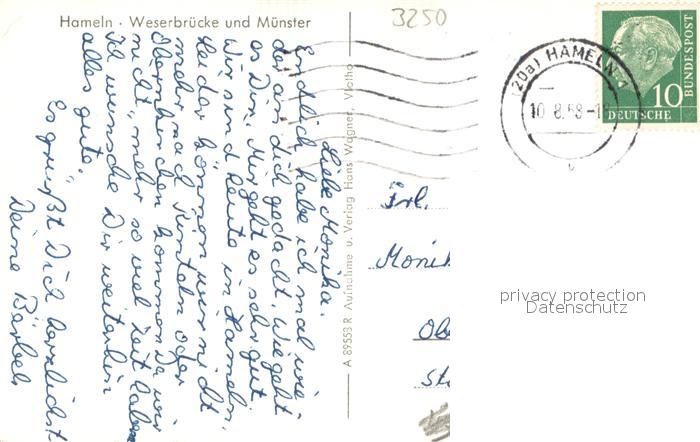 Hameln · Weserbrücke und Münster
3250
Liebe Monika.
Endlich habe ich mal wie-
der an dich gedacht. Wie geht
es Dir. Mir geht es sehr gut.
Wir sind heute in Hameln.
Leider können wir nicht
mehr nach Rinteln oder
Obernkirchen kommen Da wir
nicht mehr so viel Zeit haben
Ich wünsche Dir weiterhin
alles gute.
Es grüßt Dich herzlichst
Deine Bärbel
A 89553 R Aufnahme u. Verlag Hans Wagner, Vlotho
(20a) HAMELN
10 8.58-18
10
DEUTSCHE
BUNDESPOST
Frl.
Monik
Obe
St
privacy protection
Datenschutz